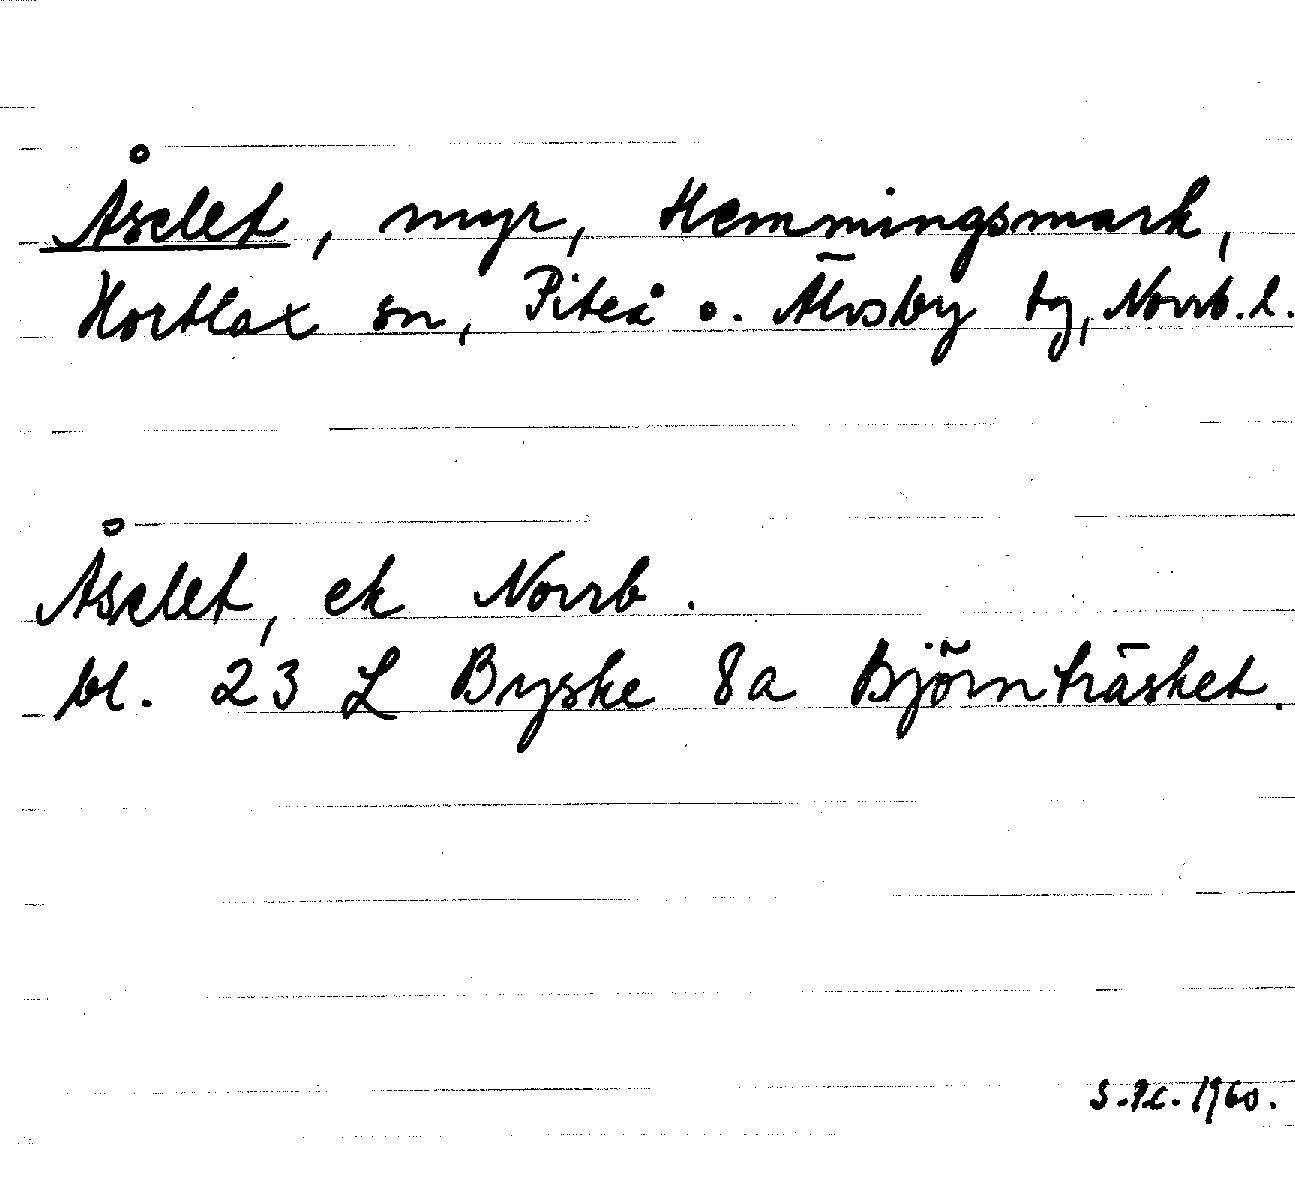 Åselet, myr, Hemmingsmark,
Hortlax sn, Piteå o. Älvsby tg, Norrb. l.
Åselet, ek Norrb.
bl. 23 L Byske 8a Björnträsket.
1960.